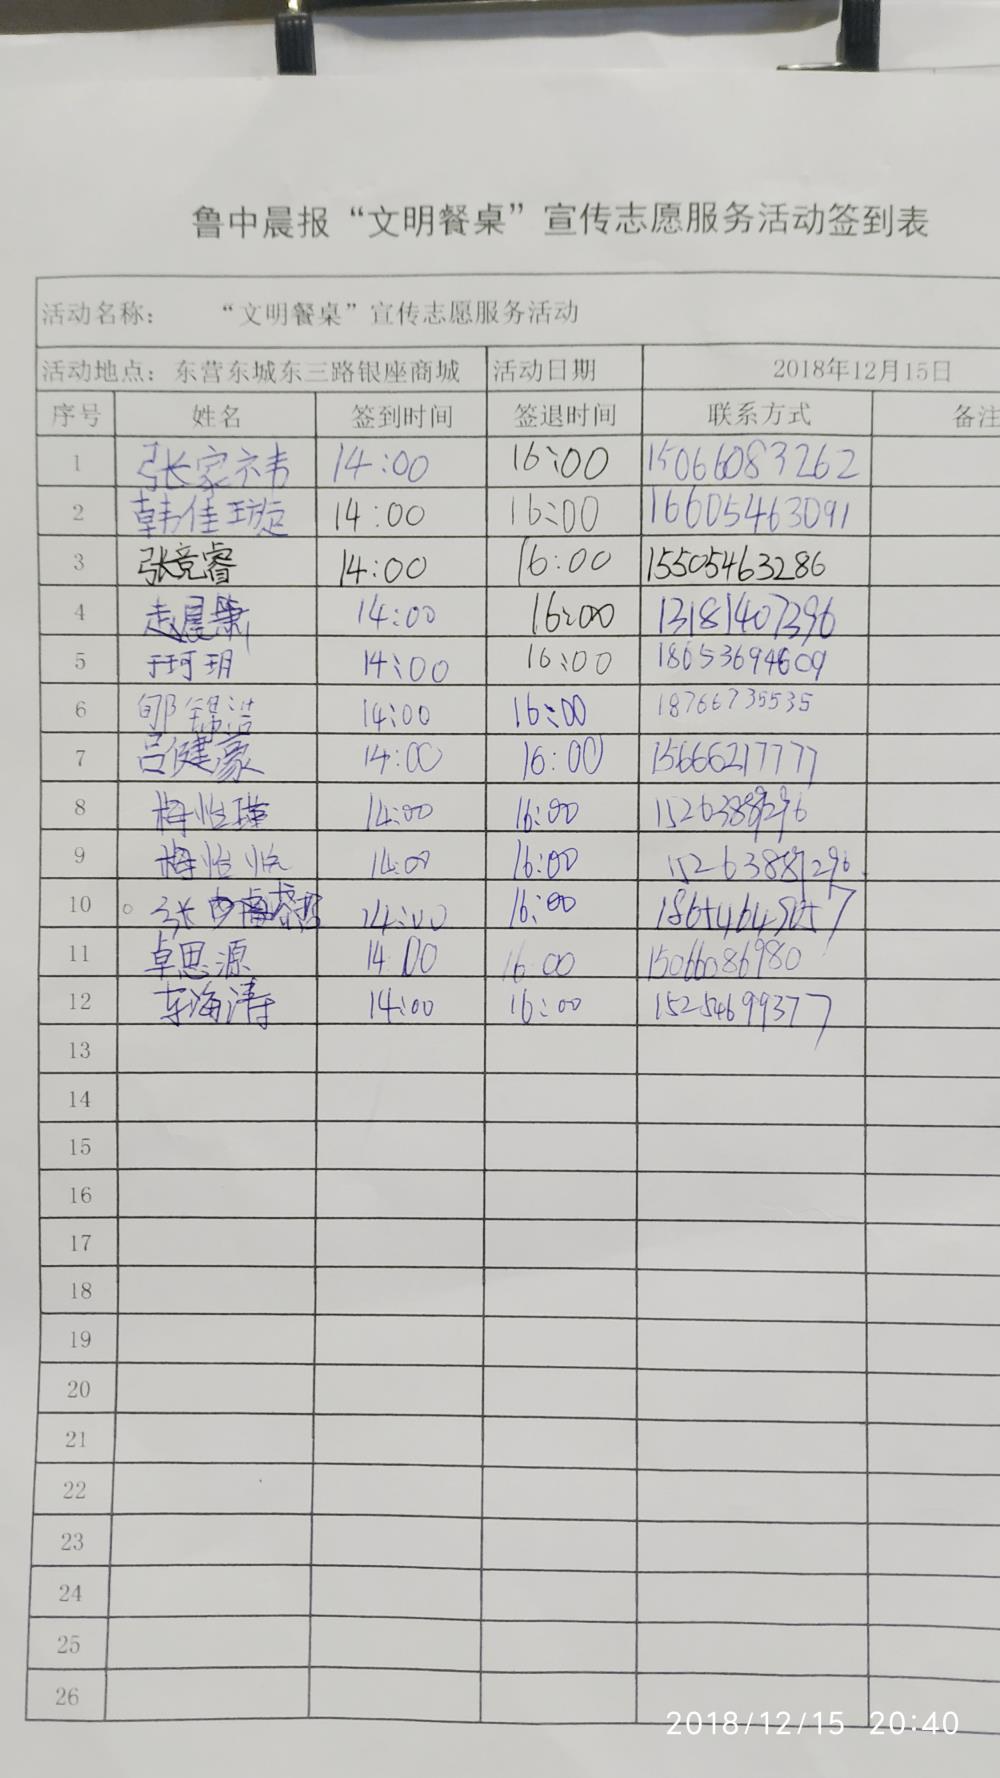 鲁中晨报“文明餐桌”宣传志愿服务活动签到表
活动名称： “文明餐桌”宣传志愿服务活动
活动地点：东营东城东三路银座商城 活动日期 2018年12月15日
序号 姓名 签到时间 签退时间 联系方式 备注
1 张家祎 14:00 16:00 15066083262
2 韩佳璇 14:00 16:00 16605463091
3 张竞睿 14:00 16:00 15505463286
4 14:00 16:00 13181407396
5 于珂玥 14:00 16:00 18653694609
6 郇锦浩 14:00 16:00 18766735535
7 吕健豪 14:00 16:00 15666217777
8 梅怡瑾 14:00 16:00
9 梅怡临 14:00 16:00 15263887296
10 14:00 16:00
11 卓思源 14:00 16:00 15066086980
12 车海涛 14:00 16:00 15254699377
13
14
15
16
17
18
19
20
21
22
23
24
25
26
2018/12/15 20:40